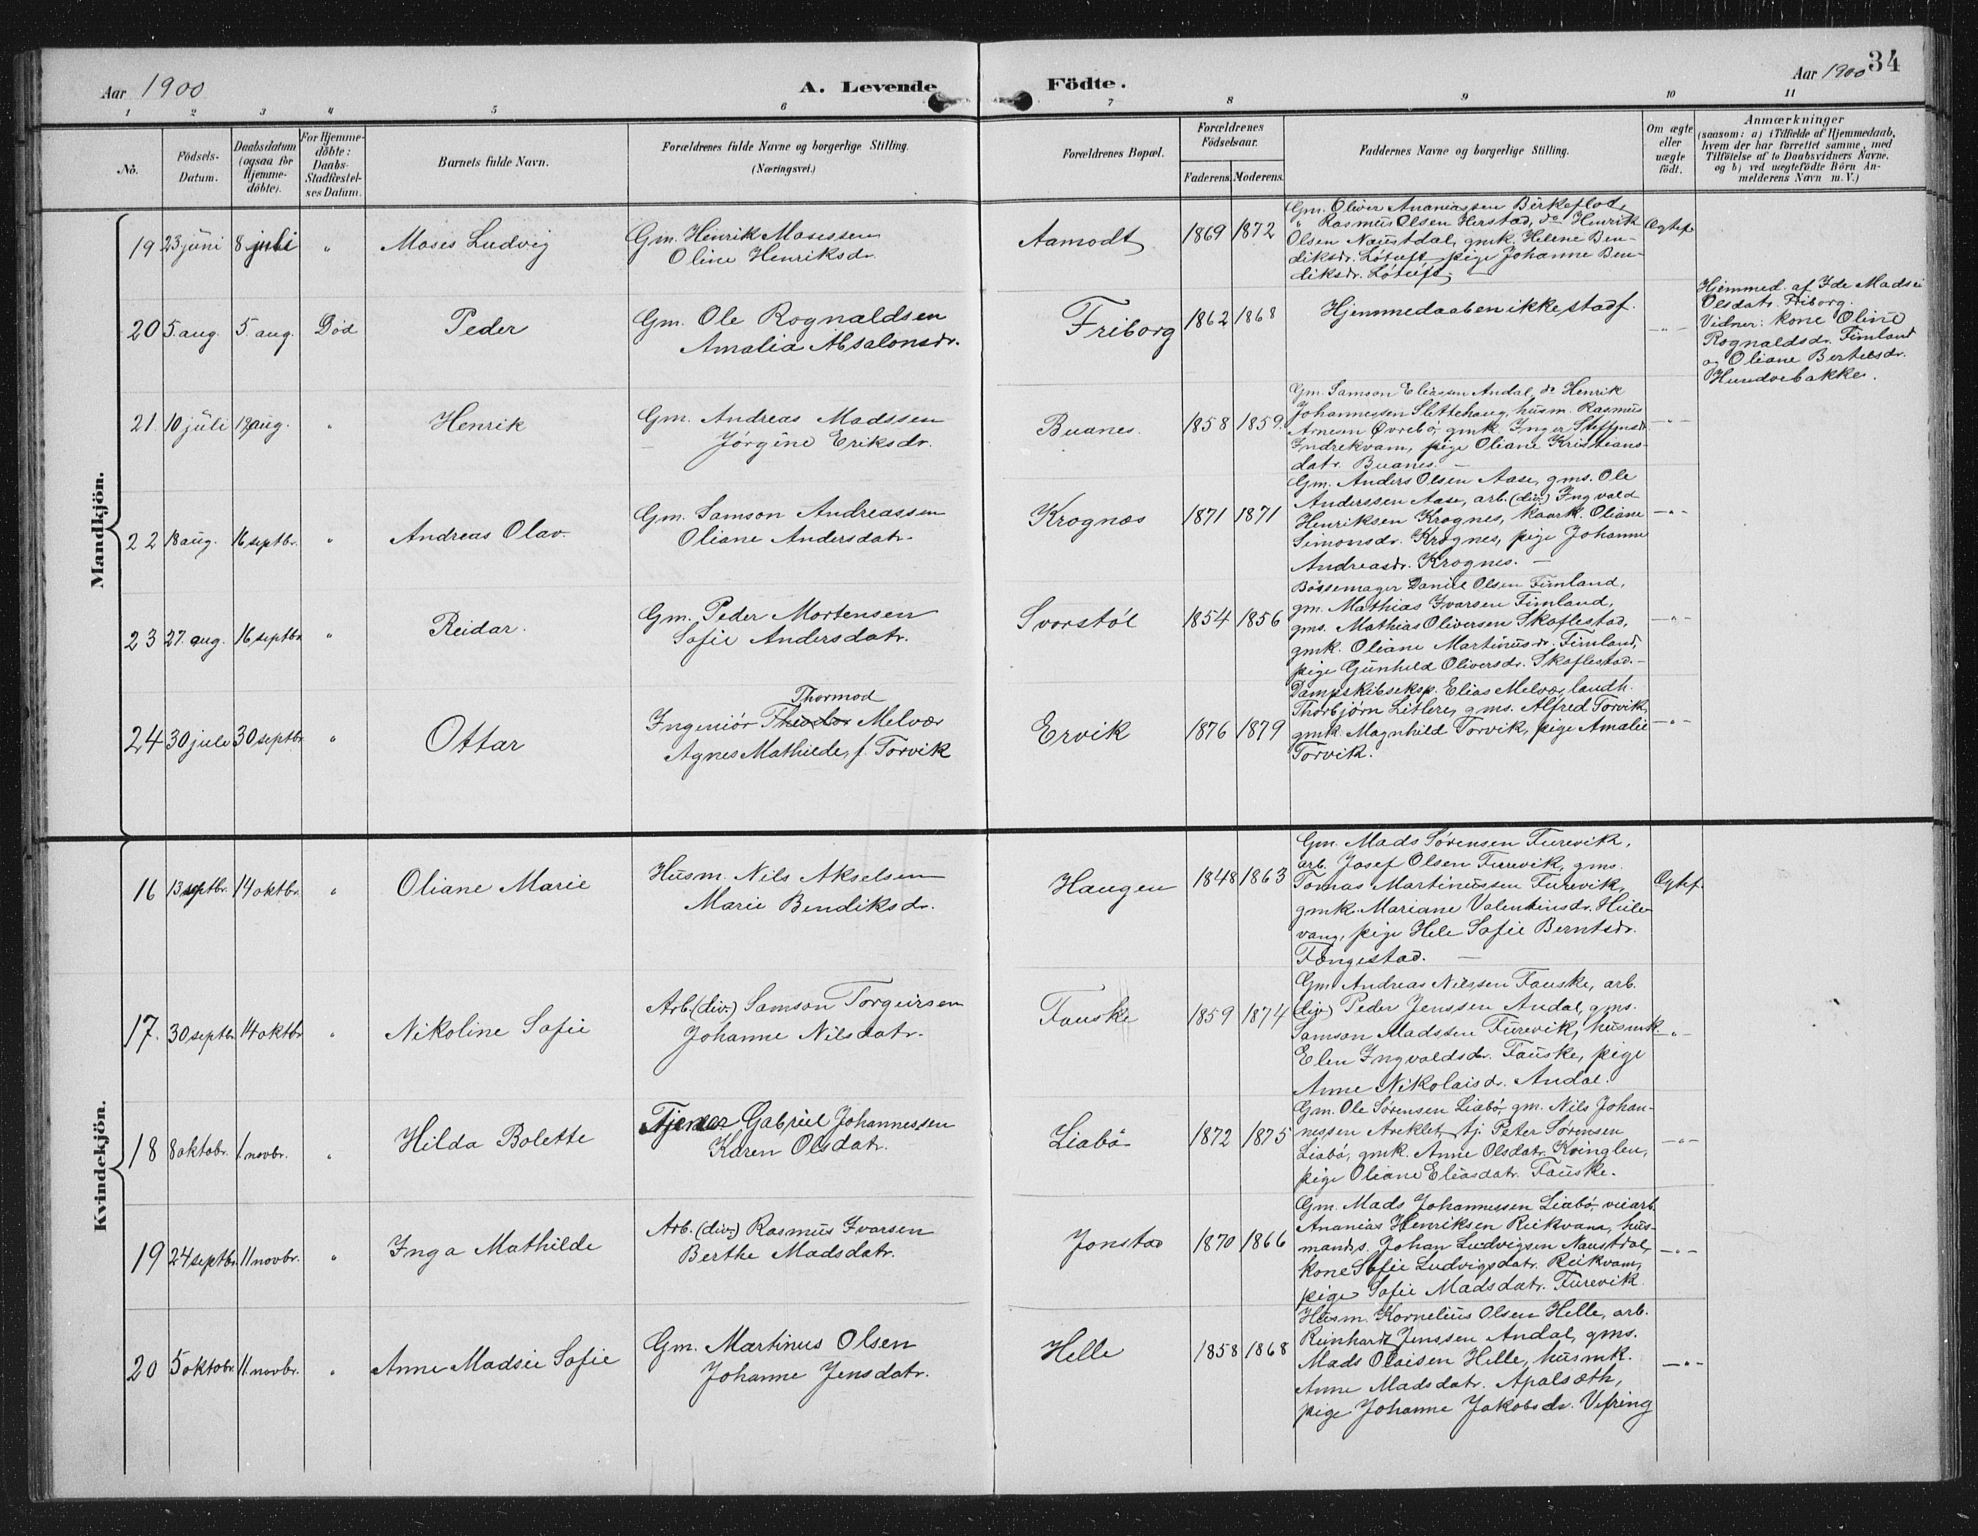 Aar 1900
A. Levende Födte.
Aar 1900
34
1 2 3 4 5 6 7 8 9 10 11
No.
Födsels-Datum.
Daabsdatum (ogsaa for Hjemmedöbte).
For Hjemmedöbte: Daabs-Stadfæstelses Datum.
Barnets fulde Navn.
Forældrenes fulde Navne og borgerlige Stilling.
(Næringsvei.)
Forældrenes Bopæl.
Forældrenes Födselsaar.
Faderens. Moderens.
Faddernes Navne og borgerlige Stilling.
Om ægte eller uægte födt.
Anmærkninger
(saasom: a) i Tilfælde af Hjemmedaab, hvem der har forrettet samme, med Tilföielse af to Daabsvidners Navne, og b) ved uægtefödte Börn Anmelderens Navn m. V.)
Mandkjön.
19 23 juni 8 juli " Moses Ludvig
Gm. Henrik Mosessen
Oline Henriksdr.
Aamodt 1869 1872
Gm. Oliver Ananiassen Birkeflod,
" Rasmus Olsen Herstad, do Henrik
Olsen Naustdal, gmk. Helene Ben-
diksdr. Løtuft, pige Johanne Ben-
diksdr. Løtuft.
Ægtef.
20 5 aug. 5. aug. Død Peder
Gm. Ole Rognaldsen
Amalia Absalonsdr.
Friborg 1862 1868
Hjemmedaaben ikke stadf.
—"—
Hjemmed. af Ide Madsi
Olsdatr. Friborg.
Vidner: kone Oline
Rognaldsdr. Fimland
og Oliane Bertelsdr.
Hundvebakke.
21. 10 juli 12 aug. " Henrik
Gm. Andreas Madssen
Jørgine Eriksdr.
Buanes. 1858 1859.
Gm. Samson Eliassen Andal, do Henrik
Johannessen Slettehaug, husm. Rasmus
Arnesen Øvrebø, gmk. Inger Steffensdr.
Indrekvam, pige Oliane Kristians-
datr. Buanes. —
—"—
22 18 aug. 16 septbr. " Andreas Olav.
Gm. Samson Andreassen
Oliane Andersdatr.
Krognæs 1871 1871
Gm. Anders Olsen Aase, gms. Ole
Anderssen Aase, arb. (div.) Ingvald
Henriksen Krognes, kaark. Oliane
Simonsdr. Krognes, pige Johanne
Andreasdr. Krognes. —
—"—
23 27 aug. 16 septbr " Reidar.
Gm. Peder Mortensen
Sofie Andersdatr.
Svorstøl 1854 1856
Bøssemager Daniel Olsen Fimland,
gm. Mathias Ivarsen Fimland,
gms. Mathias Oliversen Skaflestad,
gmk. Oliane Martinusdr. Fimland,
pige Gunhild Oliversdr. Skaflestad. —
—"—
24 30 juli 30 septbr " Ottar
Thormod
Ingeniør Theodor Melvær
Agnes Mathilde, f. Torvik
Ervik 1876 1879
Dampskibseksp. Elias Melvær, landh.
Thorbjörn Litlere, gms. Alfred Torvik,
gmk. Magnhild Torvik, pige Amalie
Torvik.
—"—
Kvindekjön.
16 13 septbr. 14 oktbr. " Oliane Marie
Husm. Nils Akselsen
Marie Bendiksdr.
Haugen 1848 1863
Gm. Mads Sørensen Furevik,
arb. Josef Olsen Furevik, gms.
Tomas Martinussen Furevik,
gmk. Mariane Valentinsdr. Hule-
vang, pige Hele Sofie Berntsdr.
Fængestad. —
Ægtef.
17. 30 septbr. 14 oktbr " Nikoline Sofie
Arb. (div.) Samson Torgeirsen
Johanne Nilsdatr.
Fauske 1859 1874
Gm Andreas Nilssen Fauske, arb.
(div) Peder Jenssen Andal, gms.
Samson Madssen Furevik, husmk.
Elen Ingvaldsdr. Fauske, pige
Anne Nikolaisdr. Andal.
—"—
18 8 oktobr. 1 novbr. " Hilda Bolette
Tjener Gabriel Johannessen
Karen Olsdatr.
Liabö 1872 1875
Gm. Ole Sørensen Liabö, gm. Nils Johan-
nessen Areklet, tj. Peter Sørensen
Liabö, gmk. Anne Olsdatr. Kvinglen,
pige Oliane Eliasdatr. Fauske.
—"—
19 24 septbr. 11 novbr. " Inga Mathilde
Arb. (div.) Rasmus Ivarsen
Berthe Madsdatr.
Jonstad 1870 1866
Gm. Mads Johannessen Liabö, veiarb.
Ananias Henriksen Reikvam, hus-
mands. Johan Ludvigsen Naustdal,
kone Sofie Ludvigsdatr. Reikvam,
pige Sofie Madsdatr. Furevik
—"—
20 5 oktobr. 11 novbr. " Anne Madsie Sofie
Gm. Martinus Olsen
Johanne Jensdatr.
Helle 1858 1868
Husm. Kornelius Olsen Helle, arb.
Reinhardt Jenssen Andal, gms.
Mads Olaisen Helle, husmk.
Anne Madsdatr. Apalsæth,
pige Johanne Jakobsdr. Vefring
—"—